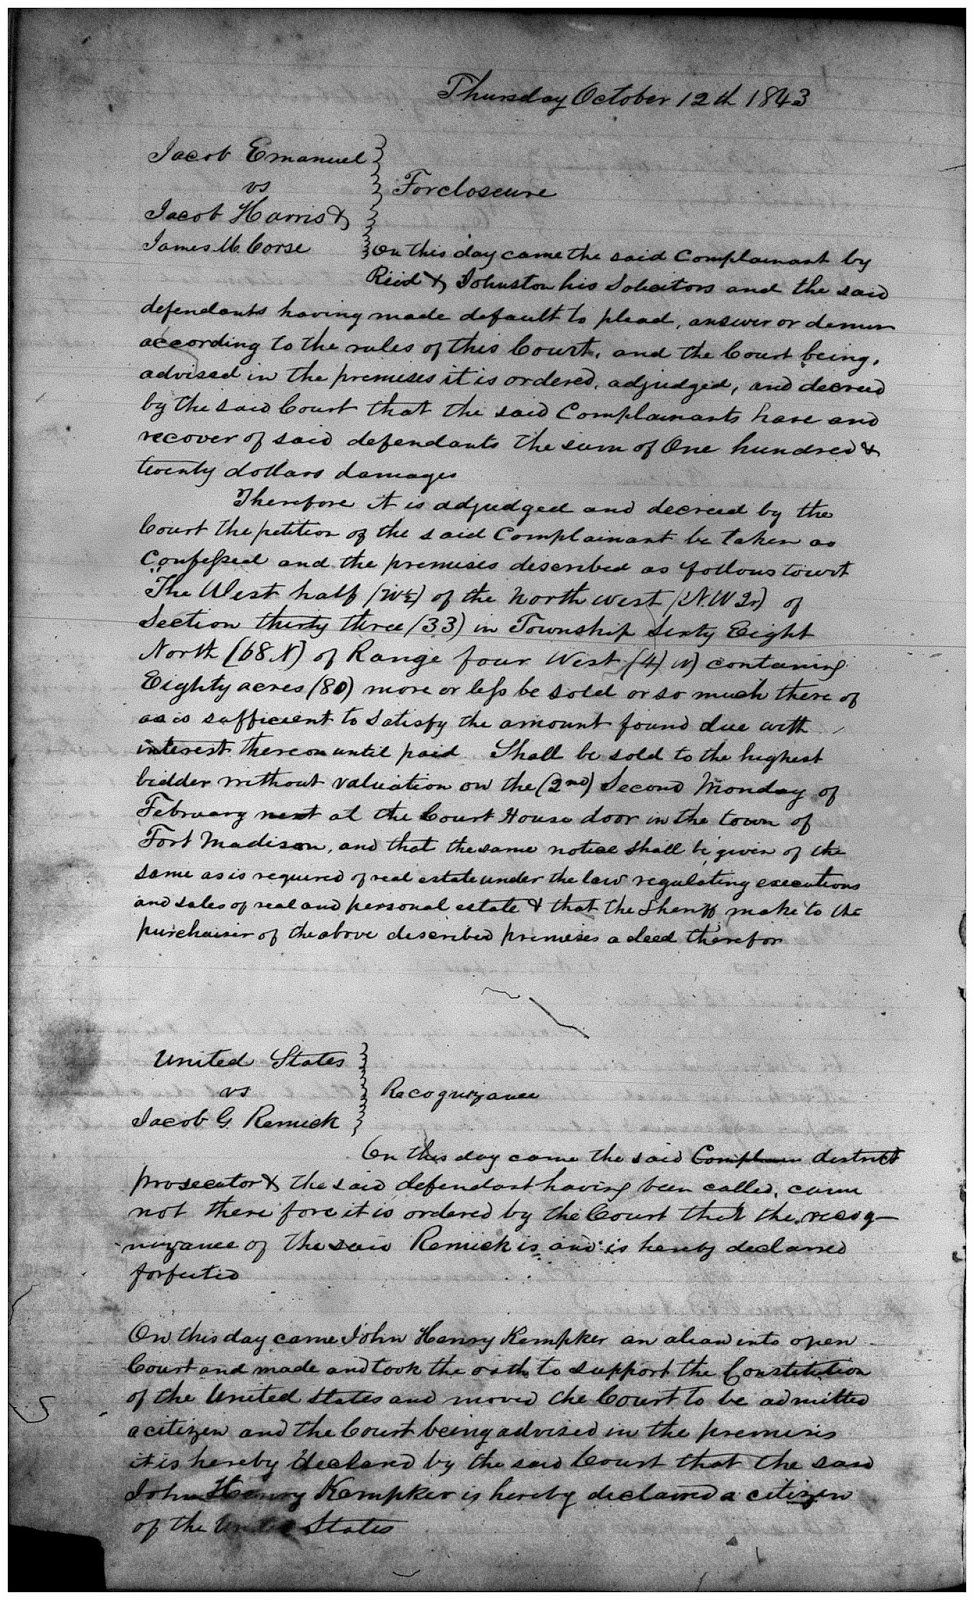 Thursday October 12th 1843
Jacob Emanuel
vs
Jacob Harris &
James M. Corse
Forcloseure
On this day came the said Complainant by
Reid & Johnston his Solicitors and the said
defendants having made default to plead, answer or demur
according to the rules of this Court, and the Court being,
advised in the premises it is ordered, adjudged, and decreed
by the said Court that the said Complainants have and
recover of said defendants the sum of One hundred &
twenty dollars damages
Therefore it is adjudged and decreed by the
Court the petition of the said Complainant be taken as
Confessed and the premises described as follows towit
The West half (W½) of the North west (N.W Qr) of
Section thirty three (33) in Township Sixty Eight
North (68 N) of Range four West (4) W) containing
Eighty acres (80) more or less be sold or so much there of
as is sufficient to satisfy the amount found due with
interest thereon until paid Shall be sold to the highest
bidder without valuation on the (2nd) Second Monday of
February next at the Court House door in the town of
Fort Madison, and that the same notice shall be given of the
same as is required of real estate under the law regulating executions
and sales of real and personal estate & that the Sheriff make to the
purchaser of the above described premises a deed therefor
United States
vs
Jacob G. Remick
Recognizance
On this day came the said Complain district
prosecutor & the said defendant having been called, came
not there fore it is ordered by the Court that the recog-
nizance of the said Remick is and is hereby declared
forfeited
On this day came John Henry Kempker an alien into open
Court and made and took the oath to support the Constitution
of the United States and moved the Court to be admitted
a citizen and the Court being advised in the premises
it is hereby declared by the said Court that the said
John Henry Kempker is hereby declared a citizen
of the United States